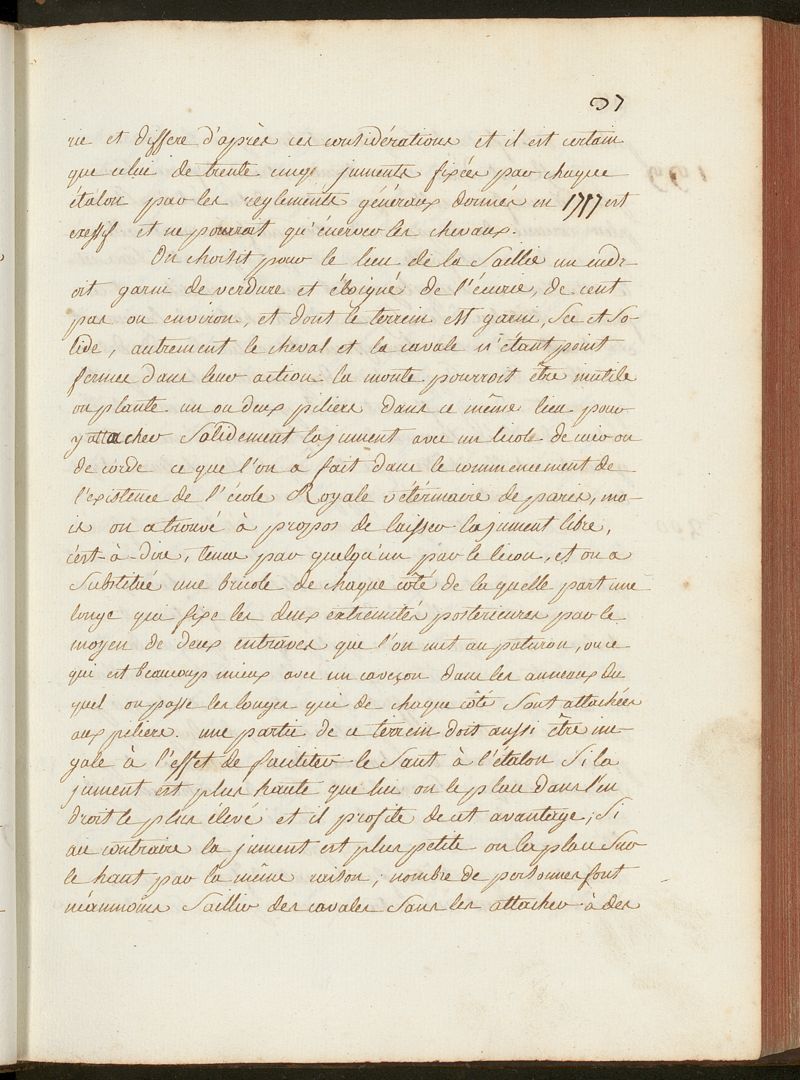 37
rie et differe d'après ces considérations et il est certain
que celui de trente cinq juments fixées par chaque
étalon par les reglements généraux donnés en 1717 est
exessif et ne pourroit qu'énerver les chevaux.
On choisit pour le lieu de la Saillie un endr-
oit garni de verdure et éloigné de l'écurie, de cent
pas ou environ, et dont le terrein est garni, Sec et So-
lide, autrement le cheval et la cavale n'étant point
fermes dans leur action la monte pourroit être inutile
on plante un ou deux piliers dans ce même lieu pour
y attacher Solidement la jument avec un licole de cuir ou
de corde ce que l'on a fait dans le commencement de
l'existence de l'école Royale vétérinaire de paris, ma-
is on a trouvé à propos de laisser la jument libre,
c'est-à-dire, tenue par quelqu'un par le licou, et on a
Substitué une bricole de chaque côté de la quelle part une
longe qui fixe les deux extrémités posterieures par le
moyen de deux entraves que l'on met au paturon, ou ce
qui est beaucoup mieux avec un caveçon dans les anneaux du
quel on passe les longes qui de chaque côté Sont attachées
aux piliers. une partie de ce terrein doit aussi être in-
gale à l'effet de faciliter le Saut à l'étalon Si la
jument est plus haute que lui on le place dans l'en
droit le plus élevé et il profite de cet avantage; Si
au contraire la jument est plus petite on la place Sur
le haut par la même raison; nombre de personnes font
néanmoins Saillir des cavales Sans les attacher à des